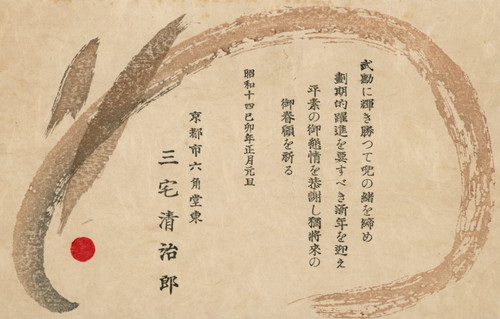 武勲に輝き勝つて兜の緒を締め
劃期的躍進を要すべき新年を迎え
平素の御懇情を恭謝し猶將來の
御眷顧を祈る
昭和十四己卯年正月元旦
京都市六角堂東
三宅清治郎